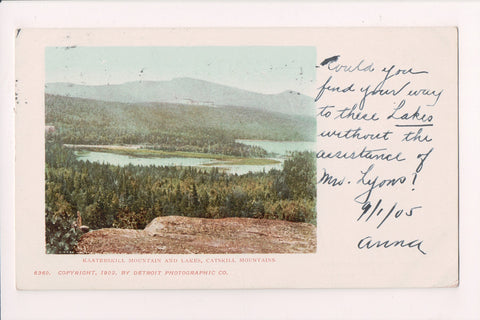 Could you
find your way
to these Lakes
without the
assistance of
Mrs. Lyons!
9/1/05
Anna
KAATERSKILL MOUNTAIN AND LAKES, CATSKILL MOUNTAINS
6360. COPYRIGHT, 1902, BY DETROIT PHOTOGRAPHIC CO.